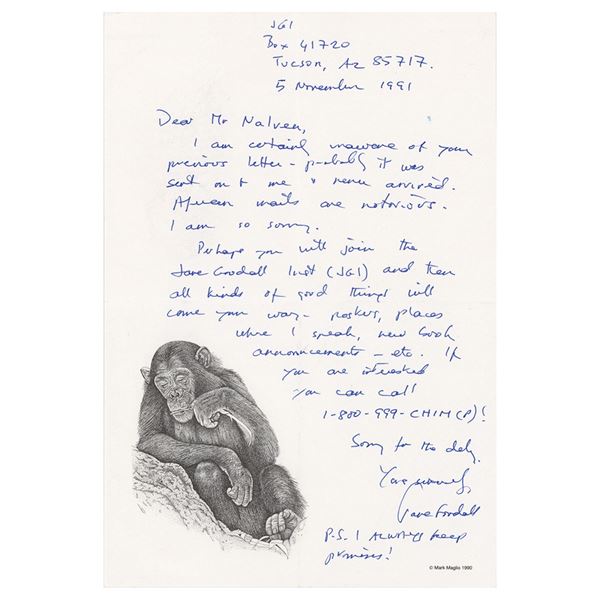 JGI
Box 41720
Tucson, Az 85717.
5 November 1991
Dear Mr Nalven,
I am certainly unaware of your
previous letter - probably it was
sent on to me & never arrived.
African mails are notorious.
I am so sorry.
Perhaps you will join the
Jane Goodall Inst (JGI) and then
all kinds of good things will
come your way - posters, places
where I speak, new book
announcements - etc. If
you are interested
you can call
1-800-999-CHIM(P)!
Sorry for the delay.
Yours sincerely,
Jane Goodall
P.S. I ALWAYS keep
promises!
© Mark Maglio 1990